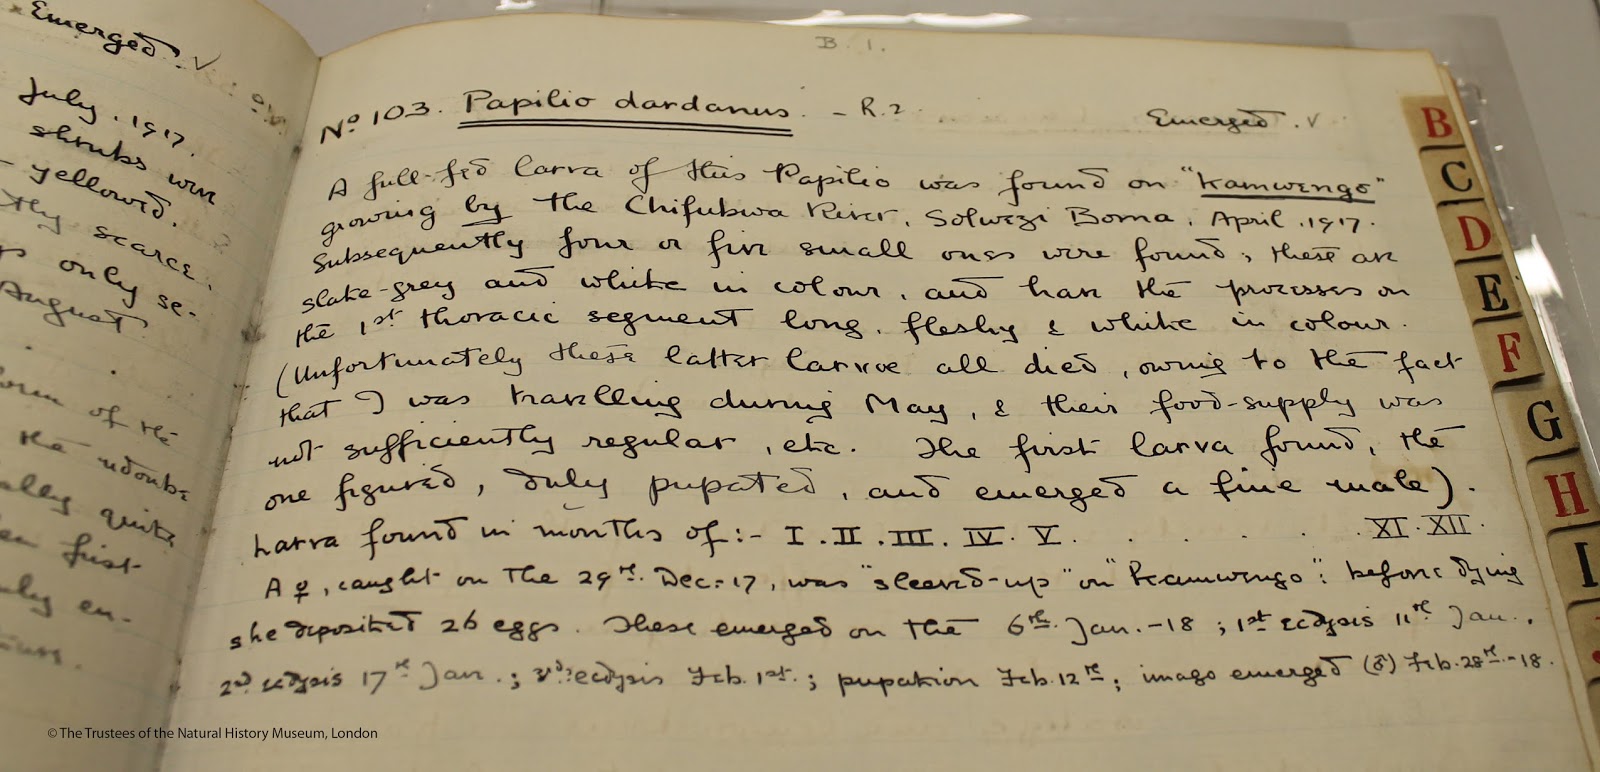 Emerged. ✓
July. 1917.
shrubs were
yellowed.
scarce.
only se-
August
of the
the
quite
first
en-
B. 1.
Nº 103. Papilio dardanus. - R.2. Emerged. ✓
A full-fed larva of this Papilio was found on "Kamwengo"
growing by the Chifubwa River, Solwezi Boma, April. 1917.
Subsequently four or five small ones were found; these are
slate-grey and white in colour, and have the processes on
the 1st thoracic segment long, fleshy & white in colour.
(Unfortunately these latter larvae all died, owing to the fact
that I was travelling during May, & their food-supply was
not sufficiently regular, etc. The first larva found, the
one figured, duly pupated, and emerged a fine male).
Larva found in months of:- I. II. III. IV. V. . . . . . XI. XII.
A ♀, caught on the 29th. Dec:-17, was "sleeved-up" on "Kamwengo": before dying
she deposited 26 eggs. These emerged on the 6th. Jan.-18; 1st ecdysis 11th Jan.,
2nd ecdysis 17th Jan.; 3rd: ecdysis Feb. 1st.; pupation Feb. 12th; imago emerged (♂) Feb. 28th.-18.
B
C
D
E
F
G
H
I
© The Trustees of the Natural History Museum, London